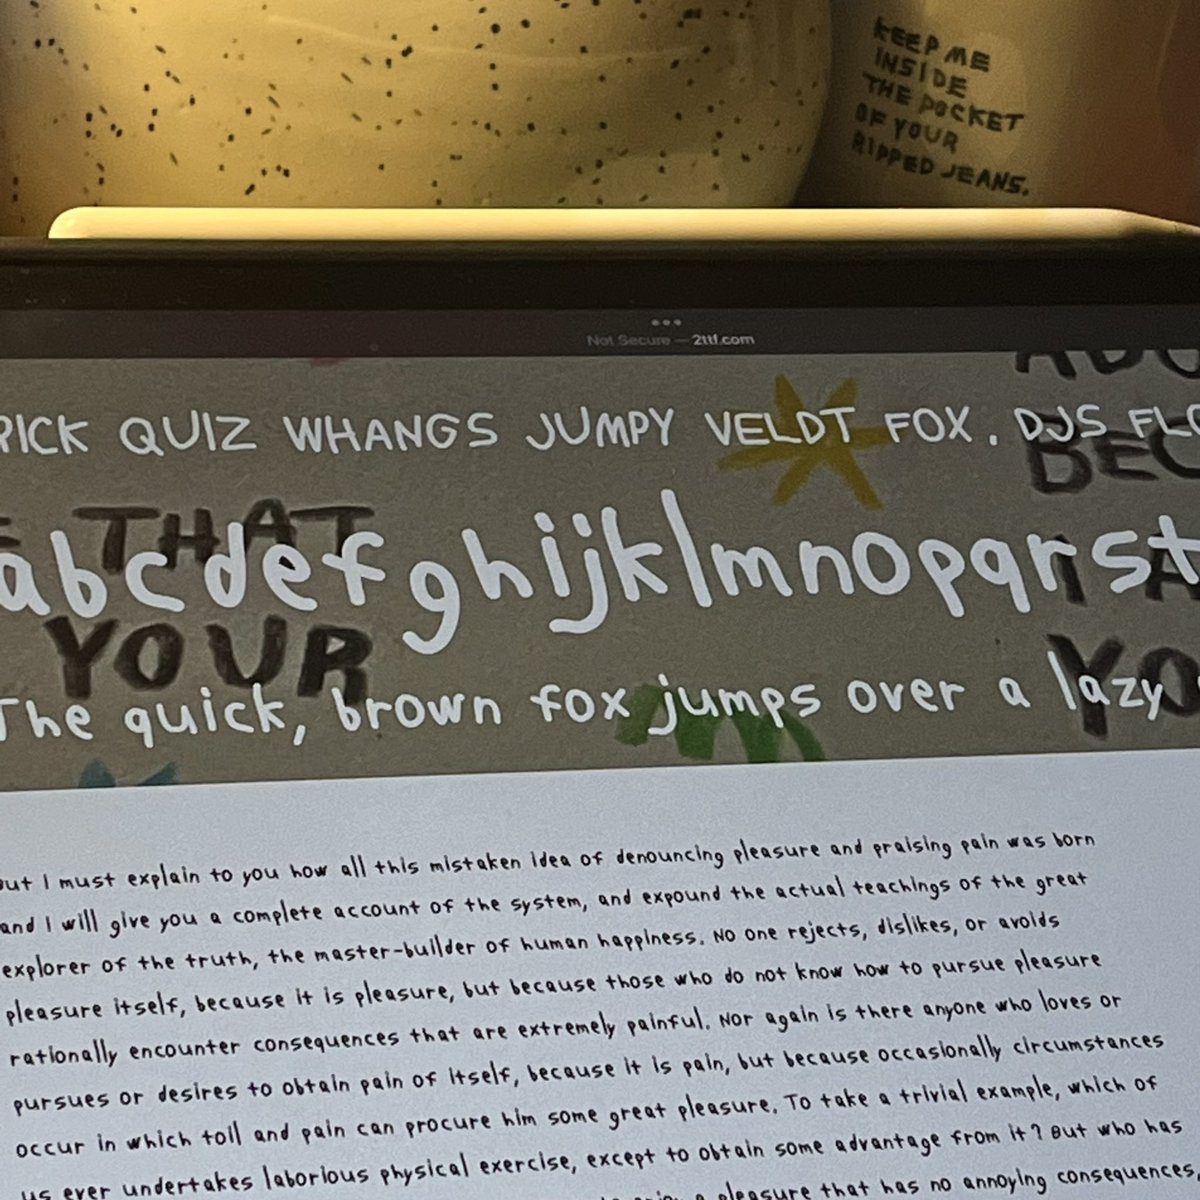 KEEP ME
INSIDE
THE POCKET
OF YOUR
RIPPED JEANS.
Not Secure — 2ttf.com
PICK QUIZ WHANGS JUMPY VELDT FOX. DJS FLO
BEC
THAT
abcdefghijklmnopqrst
YOUR
YO
The quick, brown fox jumps over a lazy
but I must explain to you how all this mistaken idea of denouncing pleasure and praising pain was born
and I will give you a complete account of the system, and expound the actual teachings of the great
explorer of the truth, the master-builder of human happiness. No one rejects, dislikes, or avoids
pleasure itself, because it is pleasure, but because those who do not know how to pursue pleasure
rationally encounter consequences that are extremely painful. Nor again is there anyone who loves or
pursues or desires to obtain pain of itself, because it is pain, but because occasionally circumstances
occur in which toil and pain can procure him some great pleasure. To take a trivial example, which of
us ever undertakes laborious physical exercise, except to obtain some advantage from it? But who has
a pleasure that has no annoying consequences,